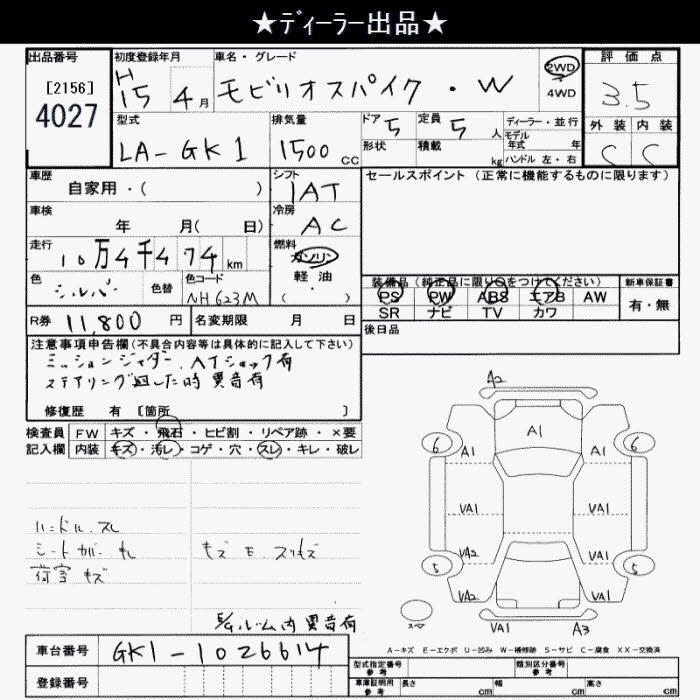 ★ディーラー出品★
出品番号
[2156]
4027
初度登録年月
H
15年 4月
車名・グレード
モビリオスパイク・W
2WD
4WD
評価点
3.5
型式
LA-GK1
排気量
1500 cc
ドア
5
定員
5人
形状
積載
kg
ディーラー・並行
モデル
年式 年
ハンドル 左・右
外装 内装
C C
車歴
自家用・( )
シフト
IAT
セールスポイント (正常に機能するものに限ります)
車検
年 月( 日)
冷房
AC
走行
10万4千474 km
燃料
ガソリン
軽・油
( )
色
シルバー
色替
色コード
NH623M
装備品(純正品に限り○をつけてください)
PS PW ABS エアB AW
SR ナビ TV カワ
新車保証書
有・無
R券 11,800 円
名変期限 月 日
後日品
注意事項申告欄(不具合内容等は具体的に記入して下さい)
ミッションジャダー、ATショック有
ステアリング回した時異音有
修復歴 有 [箇所 ]
検査員
記入欄
FW キズ・飛石・ヒビ割・リペア跡・×要
内装 キズ・汚レ・コゲ・穴・スレ・キレ・破レ
ハンドル スレ
シートカバー
荷室 キズ
キズ E スリキズ
内異音有
A2
6 6
A1 A1 A1
VA1 VA1
VA2 VA2
5 5
VA1 VA1
スペア
VA1 A3
A-キズ E-エクボ U-凹み W-補修跡 S-サビ C-腐食 XX-交換済
車台番号 GK1-1026614
登録番号
型式指定番号
参考
類別区分番号
参考
車庫証明用
参考
長さ cm 幅 cm 高さ cm